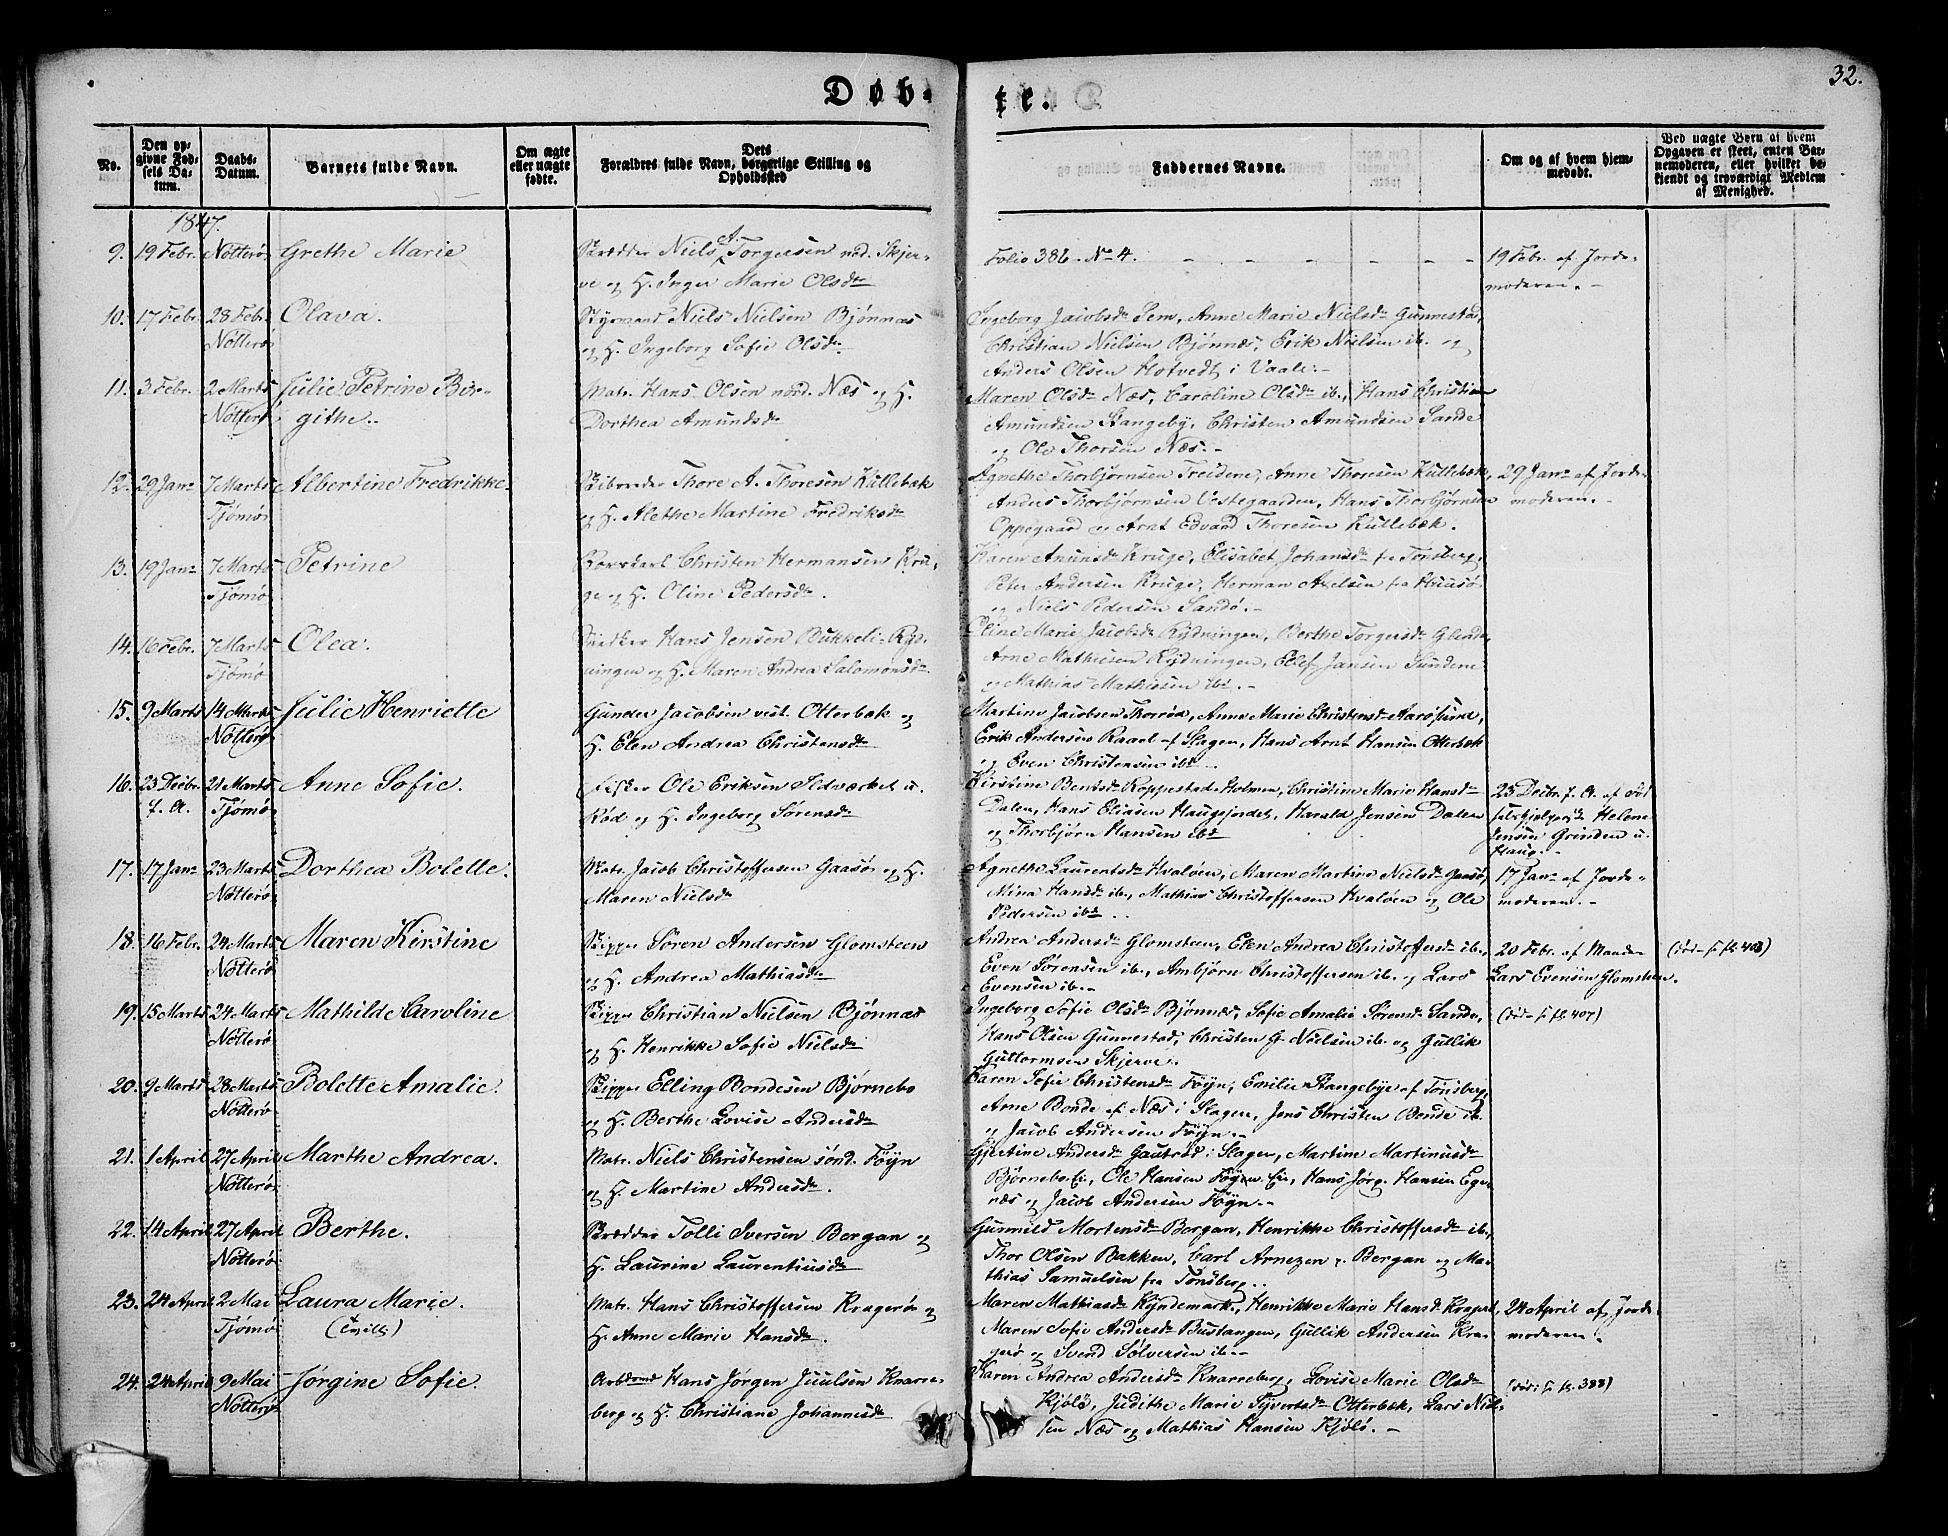 Døb-
te.
32.
No.
Den op-
givne Fød-
sels Da-
tum.
Daabs-
Datum.
Barnets fulde Navn.
Om ægte
eller uægte
fødte.
Dets
Forældres fulde Navn, borgerlige Stilling og
Opholdssted
Faddernes Navne.
Om og af hvem hjem-
medøbt.
Ved uægte Børn af hvem
Opgaven er skeet, enten Bar-
nemoderen, eller hvilket be-
kjendt og troværdigt Medlem
af Menighed.
1847.
9. 19 Febr. Nøtterø Grethe Marie
Skrædder Niels A. Torgersen ned. Skjer-
ve og H. Inger Marie Olsdr
Folio 386. No 4.
19 Febr. af Jorde-
moderen.-
10. 17 Febr. 28 Febr. Olava.
Nøtterø
Styrmand Niels Nielsen Bjønnæs
og H. Ingeborg Sofie Olsdr
Ingeborg Jacobsdr Sem, Anne Marie Nielsdr Gunnestad,
Christian Nielsen Bjønnæs, Erik Nielsen ib. og
Anders Olsen Hotvedt i Vaale.-
11. 3 Febr. 2 Marts Julie Petrine Bir-
Nøtterø githe.
Matr. Hans Olsen nord. Næs og H.
Dorthea Amundsdr
Maren Olsdr Næs, Caroline Olsdr ib., Hans Christian
Amundsen Stangeby, Christen Amundsen Sande
og Ole Thorsen Næs.-
12. 29 Janr 7 Marts Albertine Fredrikke
Tjømø
Thore A. Thoresen Kullebæk
og H. Alethe Martine Fredriksdr
Agnethe Thorbjørnsen Treidene, Anne Thoresen Kullebæk,
Anders Thorbjørnsen Vestegaarden, Hans Thorbjørnsen
Oppegaard og Arnt Edvard Thoresen Kullebæk.
29 Janr af Jorde-
moderen.-
13. 19 Janr 7 Marts Petrine
Tjømø
Christen Hermansen Kru-
ge og H. Oline Pedersdr.
Karen Amundsdr Kruge, Elisabet Johansdr fra Tønsberg,
Peter Andersen Kruge, Herman Axelsen fra Huusø
og Niels Pedersen Sandø.-
14. 16 Febr. 7 Marts Olea.
Tjømø
Snedker Hans Jensen Bukkeli Ryd-
ningen og H. Maren Andrea Salomonsdr
Oline Marie Jacobsdr Rydningen, Berthe Torgersdr
Arne Mathisen Rydningen, Ellef Jansen Sundene
og Mathias Mathiesen ibd.-
15. 9 Marts 14 Marts Julie Henriette
Nøtterø
Gunder Jacobsen vest. Otterbæk og
H. Elen Andrea Christensdr
Martine Jacobsen Thorrød, Anne Marie Christensdr Aarøsund,
Erik Andersen Raael af Slagen, Hans Arnt Hansen Otterbæk
og Even Christensen ibd
16. 23 Decbr. 21 Marts Anne Sofie.
f. A. Tjømø
Fisker Ole Eriksen Sildværket u.
Rød og H. Ingeborg Sørensdr
Kirstine Bentsdr Koppestad Holmen, Christine Marie Hansdr
Dalen, Hans Eliasen Haugsjordet, Harald Jensen Dalen
og Thorbjørn Hansen ibd
23 Decbr. f. A. af Fød-
selshjelpersk. Helene
Jensen Grinden u.
Haug.-
17. 17 Janr 23 Marts Dorthea Bolette.
Nøtterø
Matr. Jacob Christoffersen Gaasø og H.
Maren Nielsdr
Agnethe Laurentsdr Hvaløen, Maren Martine Nielsdr Gaasø,
Mina Hansdr ib., Mathias Christoffersen Hvaløen og Ole
Pedersen ibd.
17 Janr af Jorde-
moderen.-
18. 16 Febr. 24 Marts Maren Kirstine
Nøtterø
Skipper Søren Andersen Glomsteen
og H. Andrea Mathiasdr
Andrea Andersdr Glomsteen, Elen Andrea Christoffersdr ib.
Even Sørensen ib., Ambjørn Christoffersen ib. og Lars
Evensen ib.-
20 Febr. af Mand
Lars Evensen Glomsteen.
(død- s. fl. 408)
19. 15 Marts 24 Marts Mathilde Caroline
Nøtterø
Skipper Christian Nielsen Bjønnæs
og H. Henrikke Sofie Nielsdr
Ingeborg Sofie Olsdr Bjønnæs, Sofie Amalie Sørensdr Sande,
Hans Olsen Gunnestad, Christen G. Nielsen ib. og Gullik
Guttormsen Skjerve.
(død- s. fl. 407)
20. 9 Marts 28 Marts Bolette Amalie.
Nøtterø
Skipper Elling Bondesen Bjørnebo
og H. Berthe Lovise Andersdr
Karen Sofie Christensdr Føyn, Emilie Stangebye af Tønsberg,
Arne Bonde af Næs i Slagen, Jens Christen Bonde ib.
og Jacob Andersen Føyn.-
21. 1 April 27 April Marthe Andrea.
Nøtterø
Matr. Niels Christensen sønd. Føyn
og H. Martine Andersdr.
Gjertine Andersdr Gautrød i Slagen, Martine Martiniusdr
Bjørnebo, Ole Hansen Føyn, Hans Jørg. Hansen Ege-
næs og Jacob Andersen Føyn.-
22. 14 April 27 April Berthe.
Nøtterø
Skrædder Tolli Iversen Bergan og
H. Laurine Laurentiusdr
Gunnild Mortensdr Bergan, Henrikke Christoffersdr ib.,
Thor Olsen Bakken, Carl Arnezen Bergan og Ma-
thias Samuelsen fra Tønsberg.
23. 24 April 2 Mai Laura Marie.
Tjømø (Tvill)
Matr. Hans Christoffersen Kragerø og
H. Anne Marie Hansdr.
Maren Mathiasdr Kyndemark, Henrikke Marie Hansdr Kragerø,
Maren Sofie Andersdr Bustangen, Gullik Andersen Kra-
gerø og Svend Sølversen ib.-
24 April af Jorde-
moderen.
24. 24 April 9 Mai Jørgine Sofie.
Nøtterø
Arbdsmd Hans Jørgen Juulsen Knarre-
berg og H. Christiane Johannesdr
Karen Andrea Andersdr Knarreberg, Lovise Marie Olsdr
Kjølø, Judithe Marie Syvertsdr Otterbæk, Lars Niel-
sen Næs og Mathias Hansen Kjølø.-
(død: s. fl. 388)